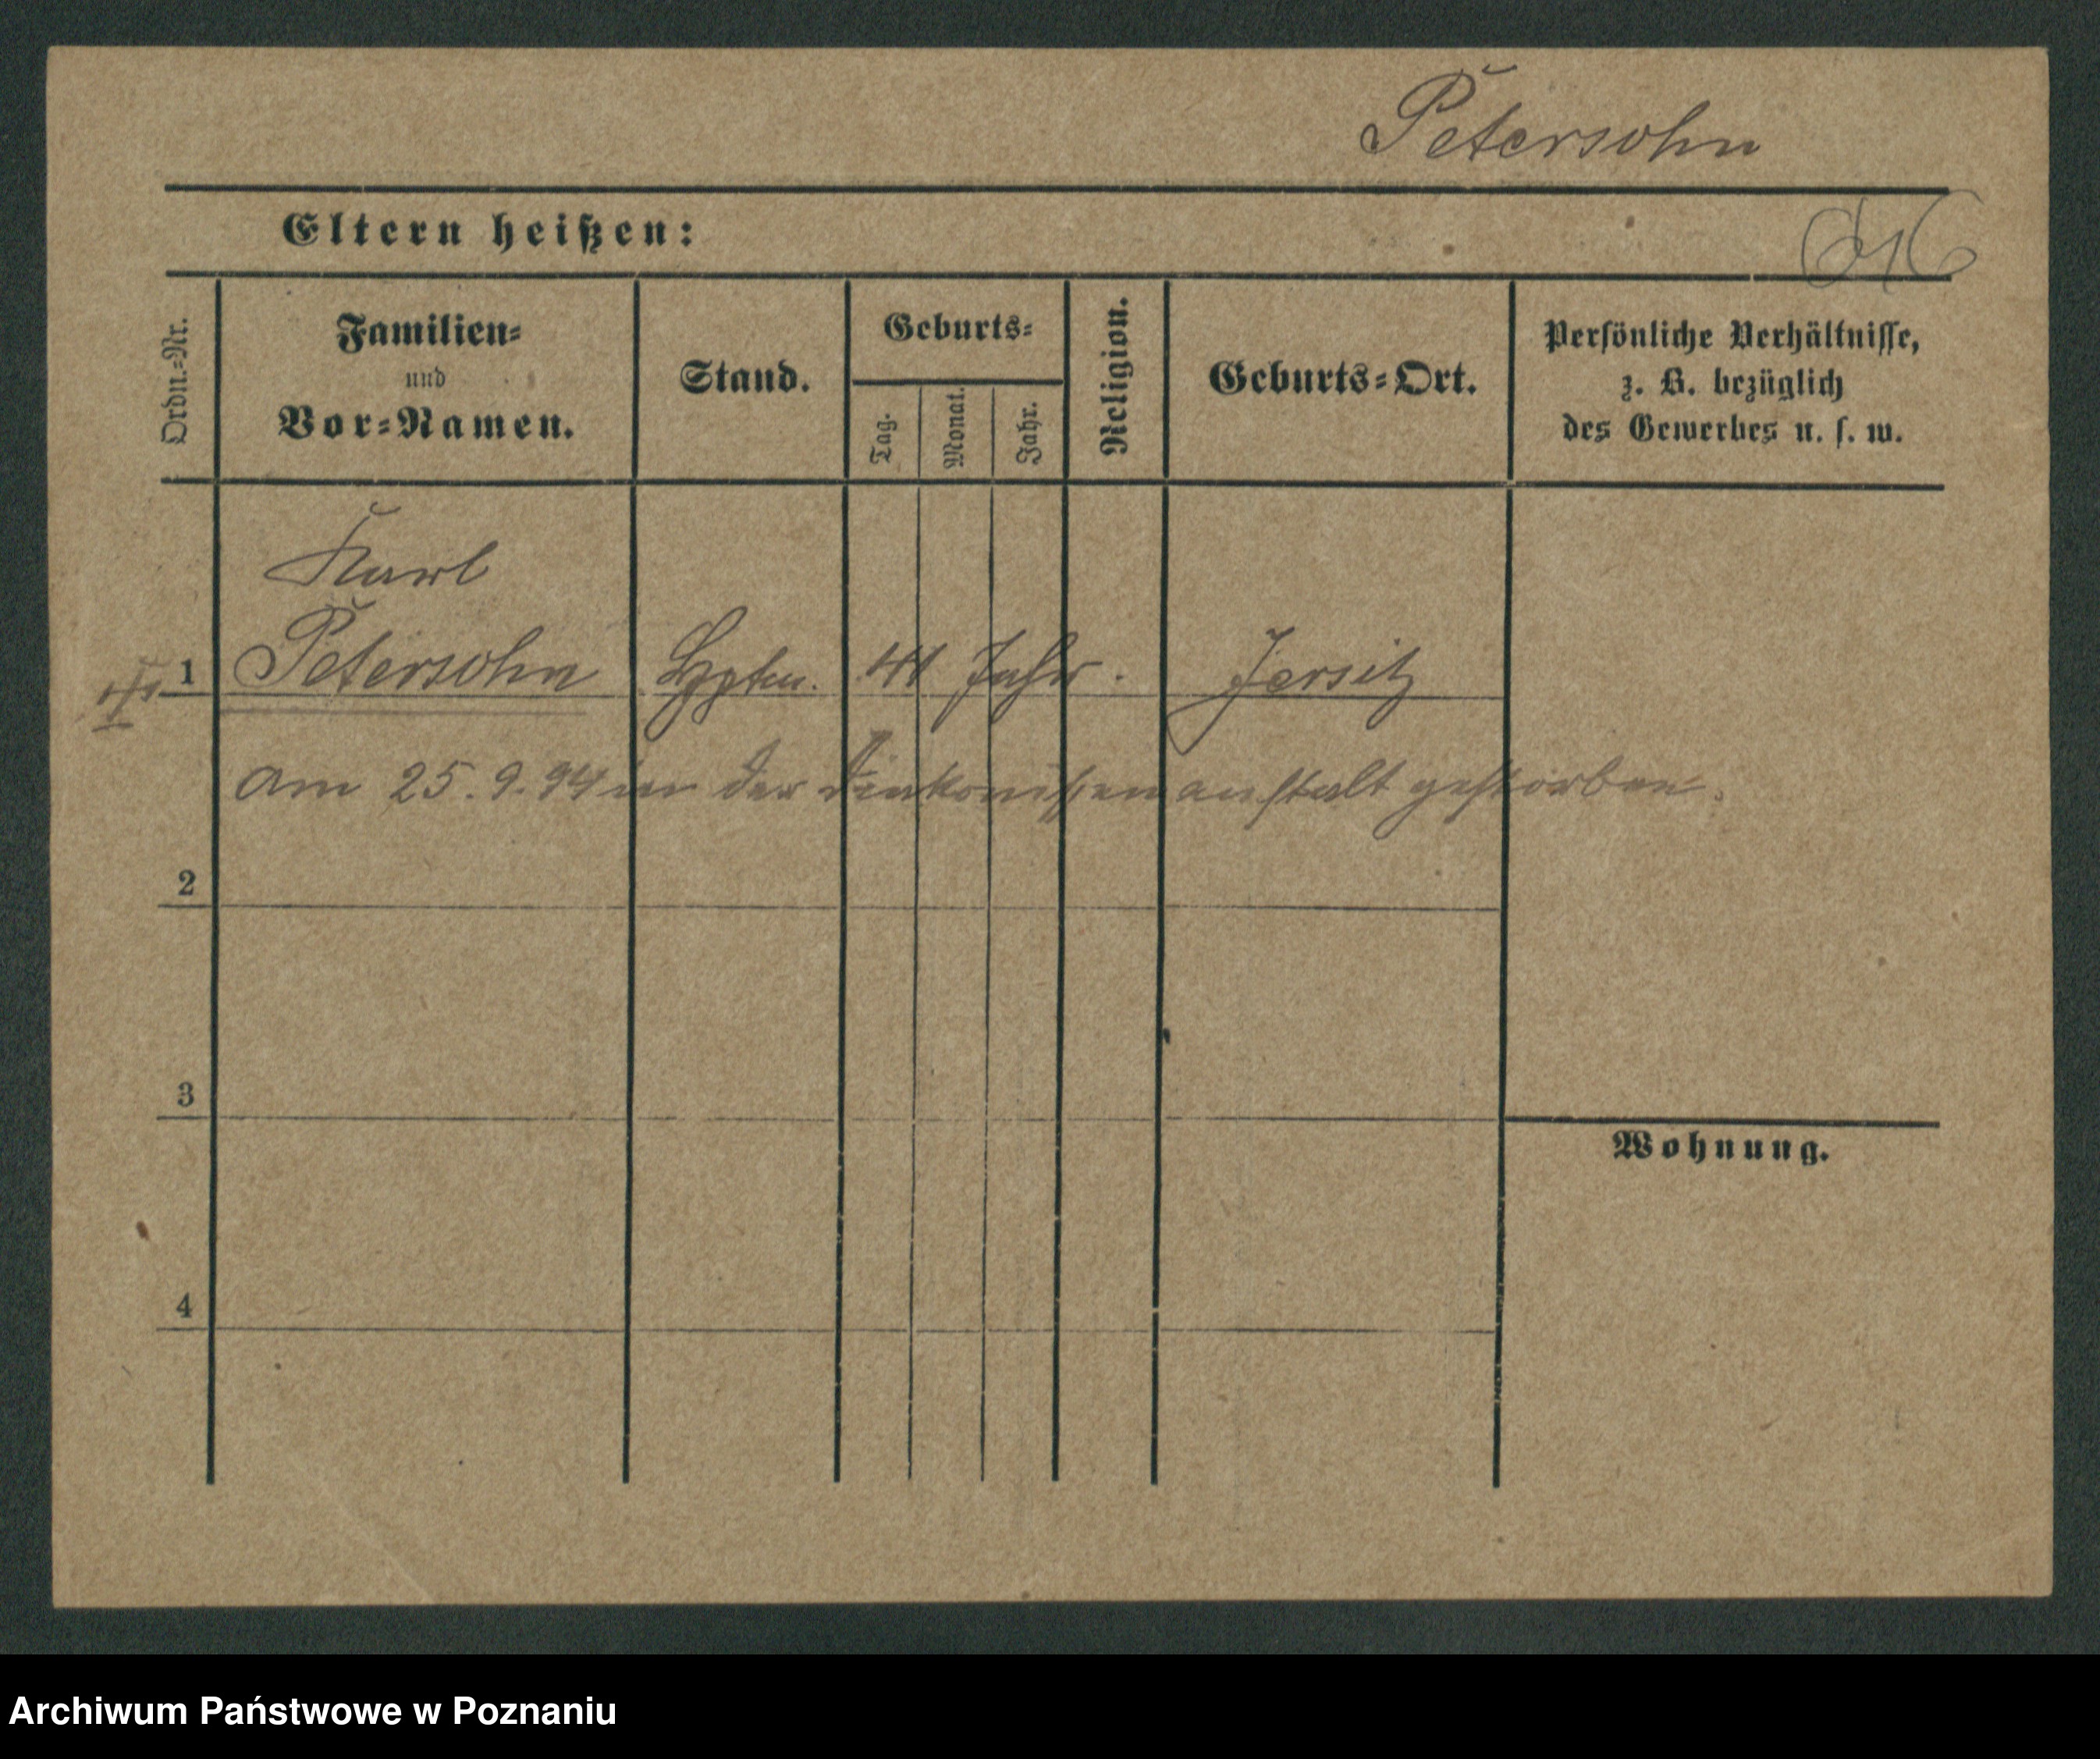 Petersohn
Eltern heißen:
Ordn.=Nr.
Familien=
und
Vor=Namen.
Stand.
Geburts=
Tag.
Monat.
Jahr.
Religion.
Geburts=Ort.
Persönliche Verhältnisse,
z. B. bezüglich
des Gewerbes u. s. w.
Karl
1 Petersohn 41 Jahr. Jersitz
Am 25.9.94 in der Diakonissenanstalt gestorben.
2
3
Wohnung.
4
Archiwum Państwowe w Poznaniu